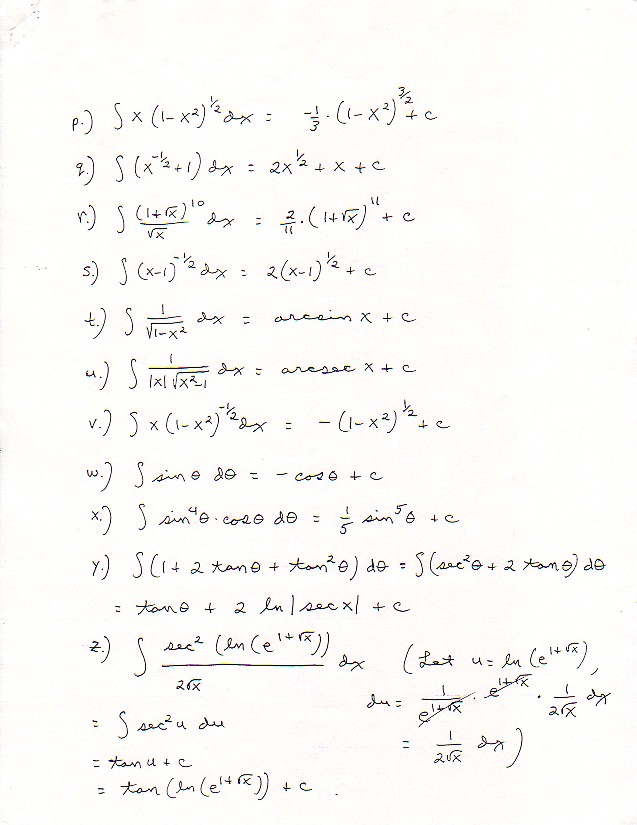 p.) ∫ x (1-x²)^½ dx = -⅓ · (1-x²)^3/2 + c
q.) ∫ (x^-½ + 1) dx = 2x^½ + x + c
r.) ∫ (1+√x)^10 / √x dx = 2/11 · (1+√x)^11 + c
s.) ∫ (x-1)^-½ dx = 2(x-1)^½ + c
t.) ∫ 1/√(1-x²) dx = arcsin x + c
u.) ∫ 1/(|x| √(x²-1)) dx = arcsec x + c
v.) ∫ x (1-x²)^-½ dx = - (1-x²)^½ + c
w.) ∫ sin θ dθ = - cos θ + c
x.) ∫ sin⁴θ · cos θ dθ = 1/5 sin⁵θ + c
y.) ∫ (1 + 2 tan θ + tan²θ) dθ = ∫ (sec²θ + 2 tan θ) dθ
= tan θ + 2 ln |sec x| + c
z.) ∫ sec² (ln (e^(1+√x))) / 2√x dx (Let u = ln (e^(1+√x)),
du = 1/e^(1+√x) · e^(1+√x) · 1/2√x dx
= ∫ sec² u du
= 1/2√x dx)
= tan u + c
= tan (ln (e^(1+√x))) + c .